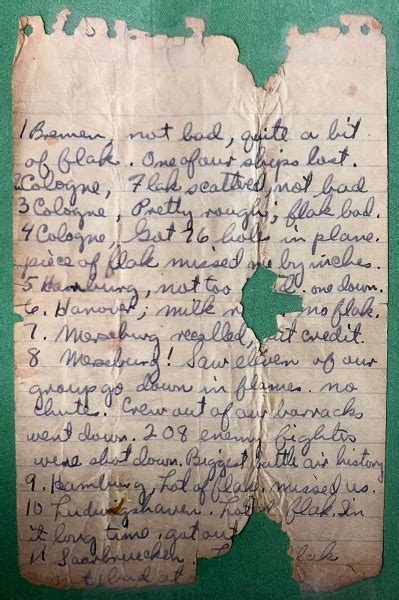 1 Bremen, not bad, quite a bit
of flak. One of our ships lost.
2 Cologne, Flak scattered, not bad
3 Cologne, Pretty rough; flak bad.
4 Cologne, Got 76 holes in plane.
piece of flak missed me by inches.
5 Hamburg, not too d. one down.
6. Hanover; milk no flak.
7. Merseburg recalled, credit.
8 Meseburg! Saw eleven of our
group go down in flames. no
chutes. Crew out of our barracks
went down. 208 enemy fighters
were shot down. Biggest battle air history
9. Hamburg, Lot of flak, missed us.
10 Ludwigshaven. Lot flak. In
it long time. got out
11 Saarbruecken. flak
bad at